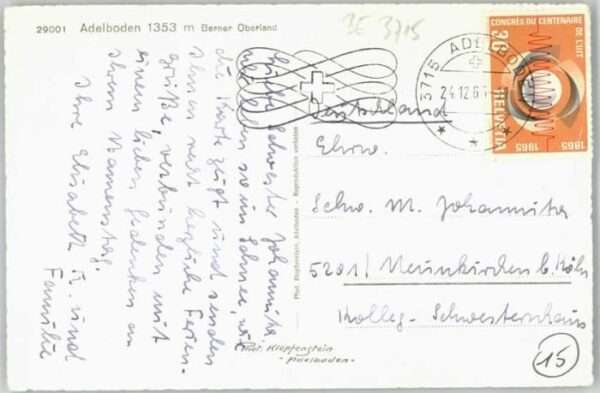 29001 Adelboden 1353 m Berner Oberland
BE 3715
Schwester Johannita,
so im Schnee, wie
die Karte zeigt und senden
Ihnen recht herzliche Ferien-
grüße, verbunden mit
einem lieben Gedenken an
Ihren Namenstag.
Ihre Elisabeth K. und
Familie
CONGRÈS DU CENTENAIRE
DE L'UIT
HELVETIA
1865 1965
3715 ADELBODEN
24.12.6
Deutschland
Ehrw.
Schw. M. Johannita
5201 Neunkirchen b. Köln
Kolleg-Schwesternhaus
15
Phot. Klopfenstein, Adelboden - Reproduktion verboten
Phot. Klopfenstein
- Adelboden -